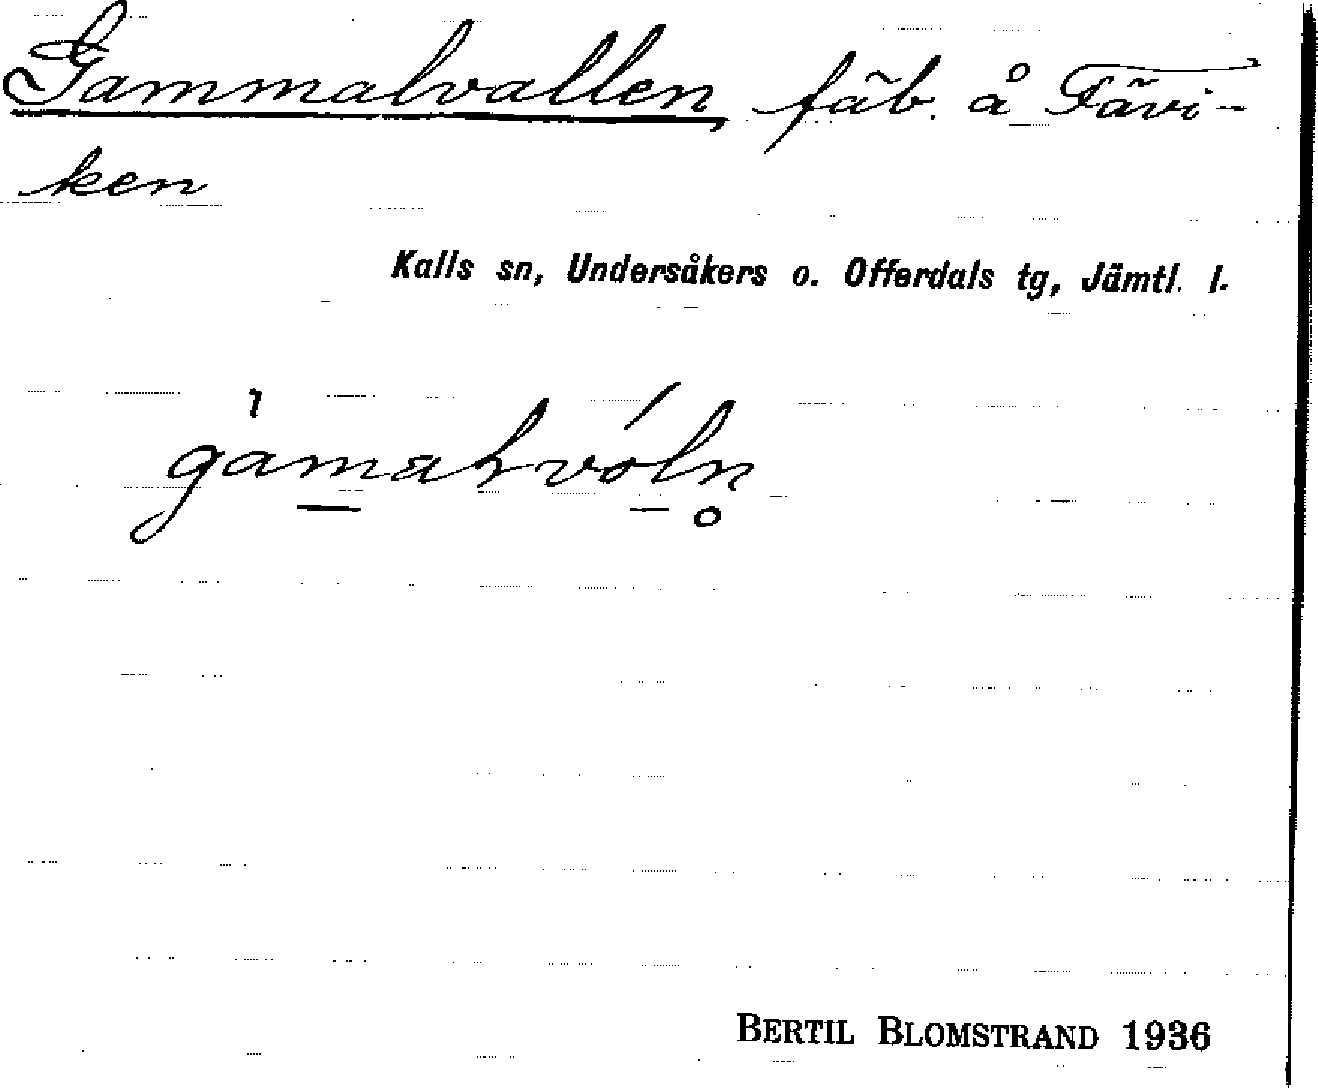 Gammalvallen, fäb. å Fävi-
ken
Kalls sn, Undersåkers o. Offerdals tg, Jämtl. l.
gamaɫvóln̥
BERTIL BLOMSTRAND 1936